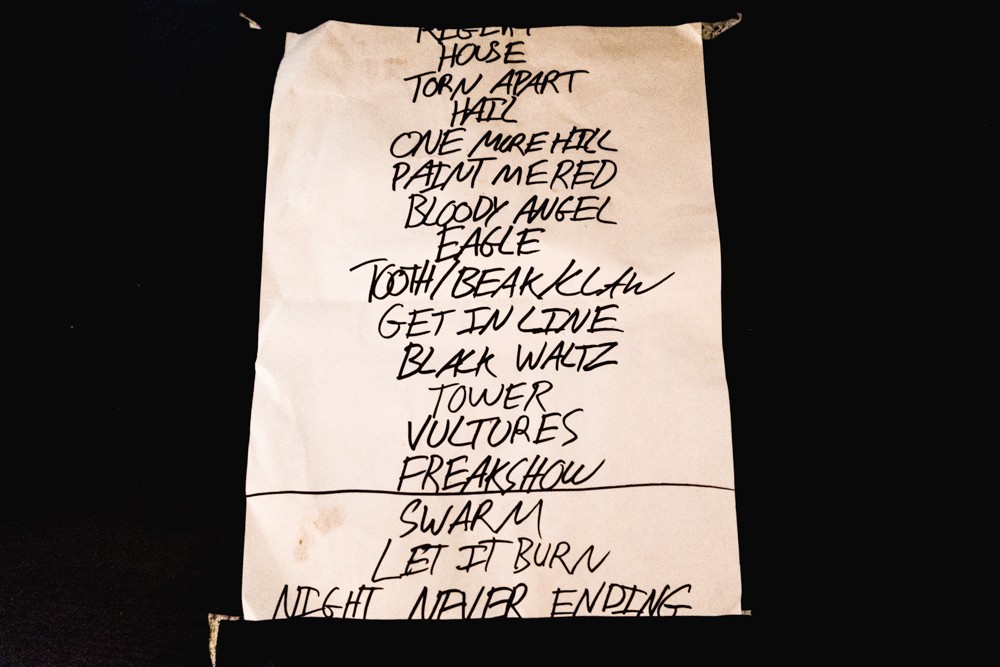 HOUSE
TORN APART
HAIL
ONE MORE HILL
PAINT ME RED
BLOODY ANGEL
EAGLE
TOOTH/BEAK/CLAW
GET IN LINE
BLACK WALTZ
TOWER
VULTURES
FREAKSHOW
SWARM
LET IT BURN
NIGHT NEVER ENDING